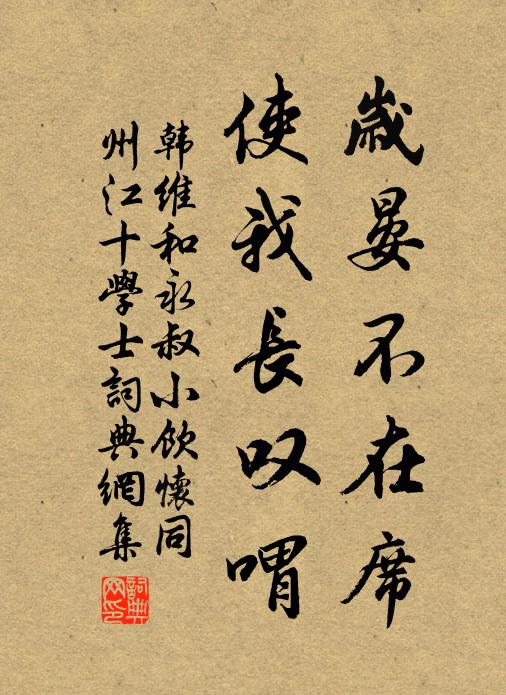 歲晏不在席
使我長叹喟
韩維和永叔小飲懷同
州江十學士詞典網集
詞典網印